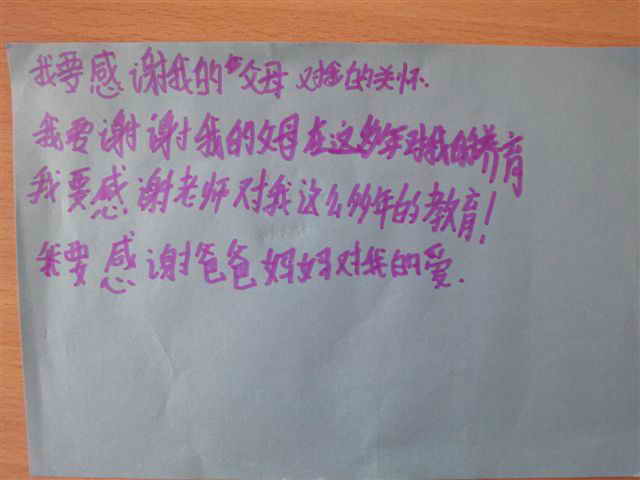 我要感谢我的父母对我的关怀.
我要谢谢我的父母在这多年对我的养育
我要感谢老师对我这么多年的教育!
我要感谢爸爸妈妈对我的爱.